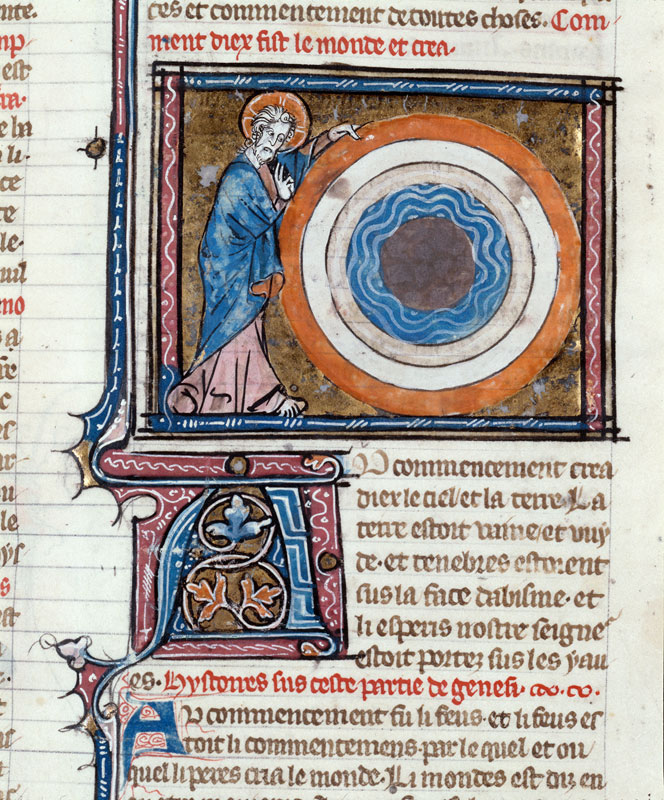 nte.
mp
est
ra.
e la
a li.
ce
te
le.
uil
eno
s a
c
es
ar
on
le
oys
s
est
ces et commencement de toutes choses. Com
ment diex fist le monde et crea.
AU commencement crea
diex le ciel et la terre. La
terre estoit vaine et vuy
de. et tenebres estoient
sus la face dabisme. et
li esperis nostre seigne
estoit portez sus les yau
es. Hystoires sus ceste partie de genesi.
AU commencement fu li feus. et li feus es
toit li commencemens. par le quel et ou
quel li peres cria le monde. Li mondes est diz en